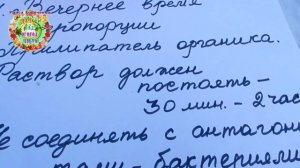 Вечернее время
пропорции
Прилипатель органика.
Раствор должен
постоять –
30 мин. – 2 час
Не соединять с антагони
бактериями